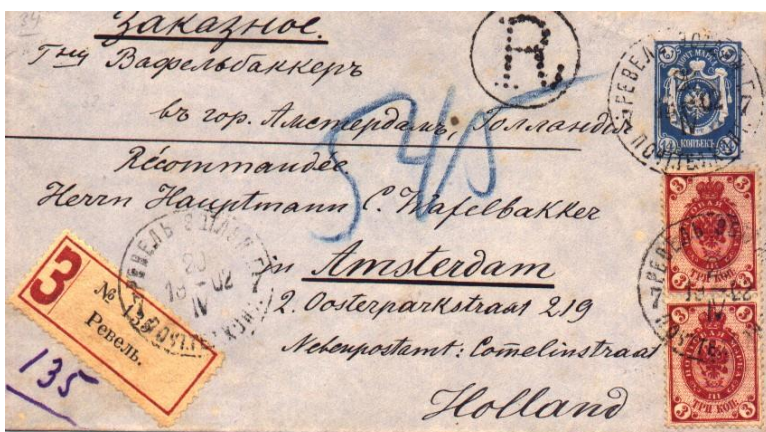 Заказное.
R.
Г-ну Вафельбаккеръ
въ гор. Амстердамъ, Голландiя
545
Récommandée.
Herrn Hauptmann C. Wafelbakker
in Amsterdam
2. Oosterparkstraat 219
Nebenpostamt: Comelinstraat
Holland
З
№
Ревель.
135
РЕВЕЛЬ
20
IV
19 02
7
КОПѢЕКЪ
РЕВЕЛЬ
7
IV
3 3
ТРИ КОП.
РЕВЕЛЬ
7
02
IV
3 3
ТРИ КОП.